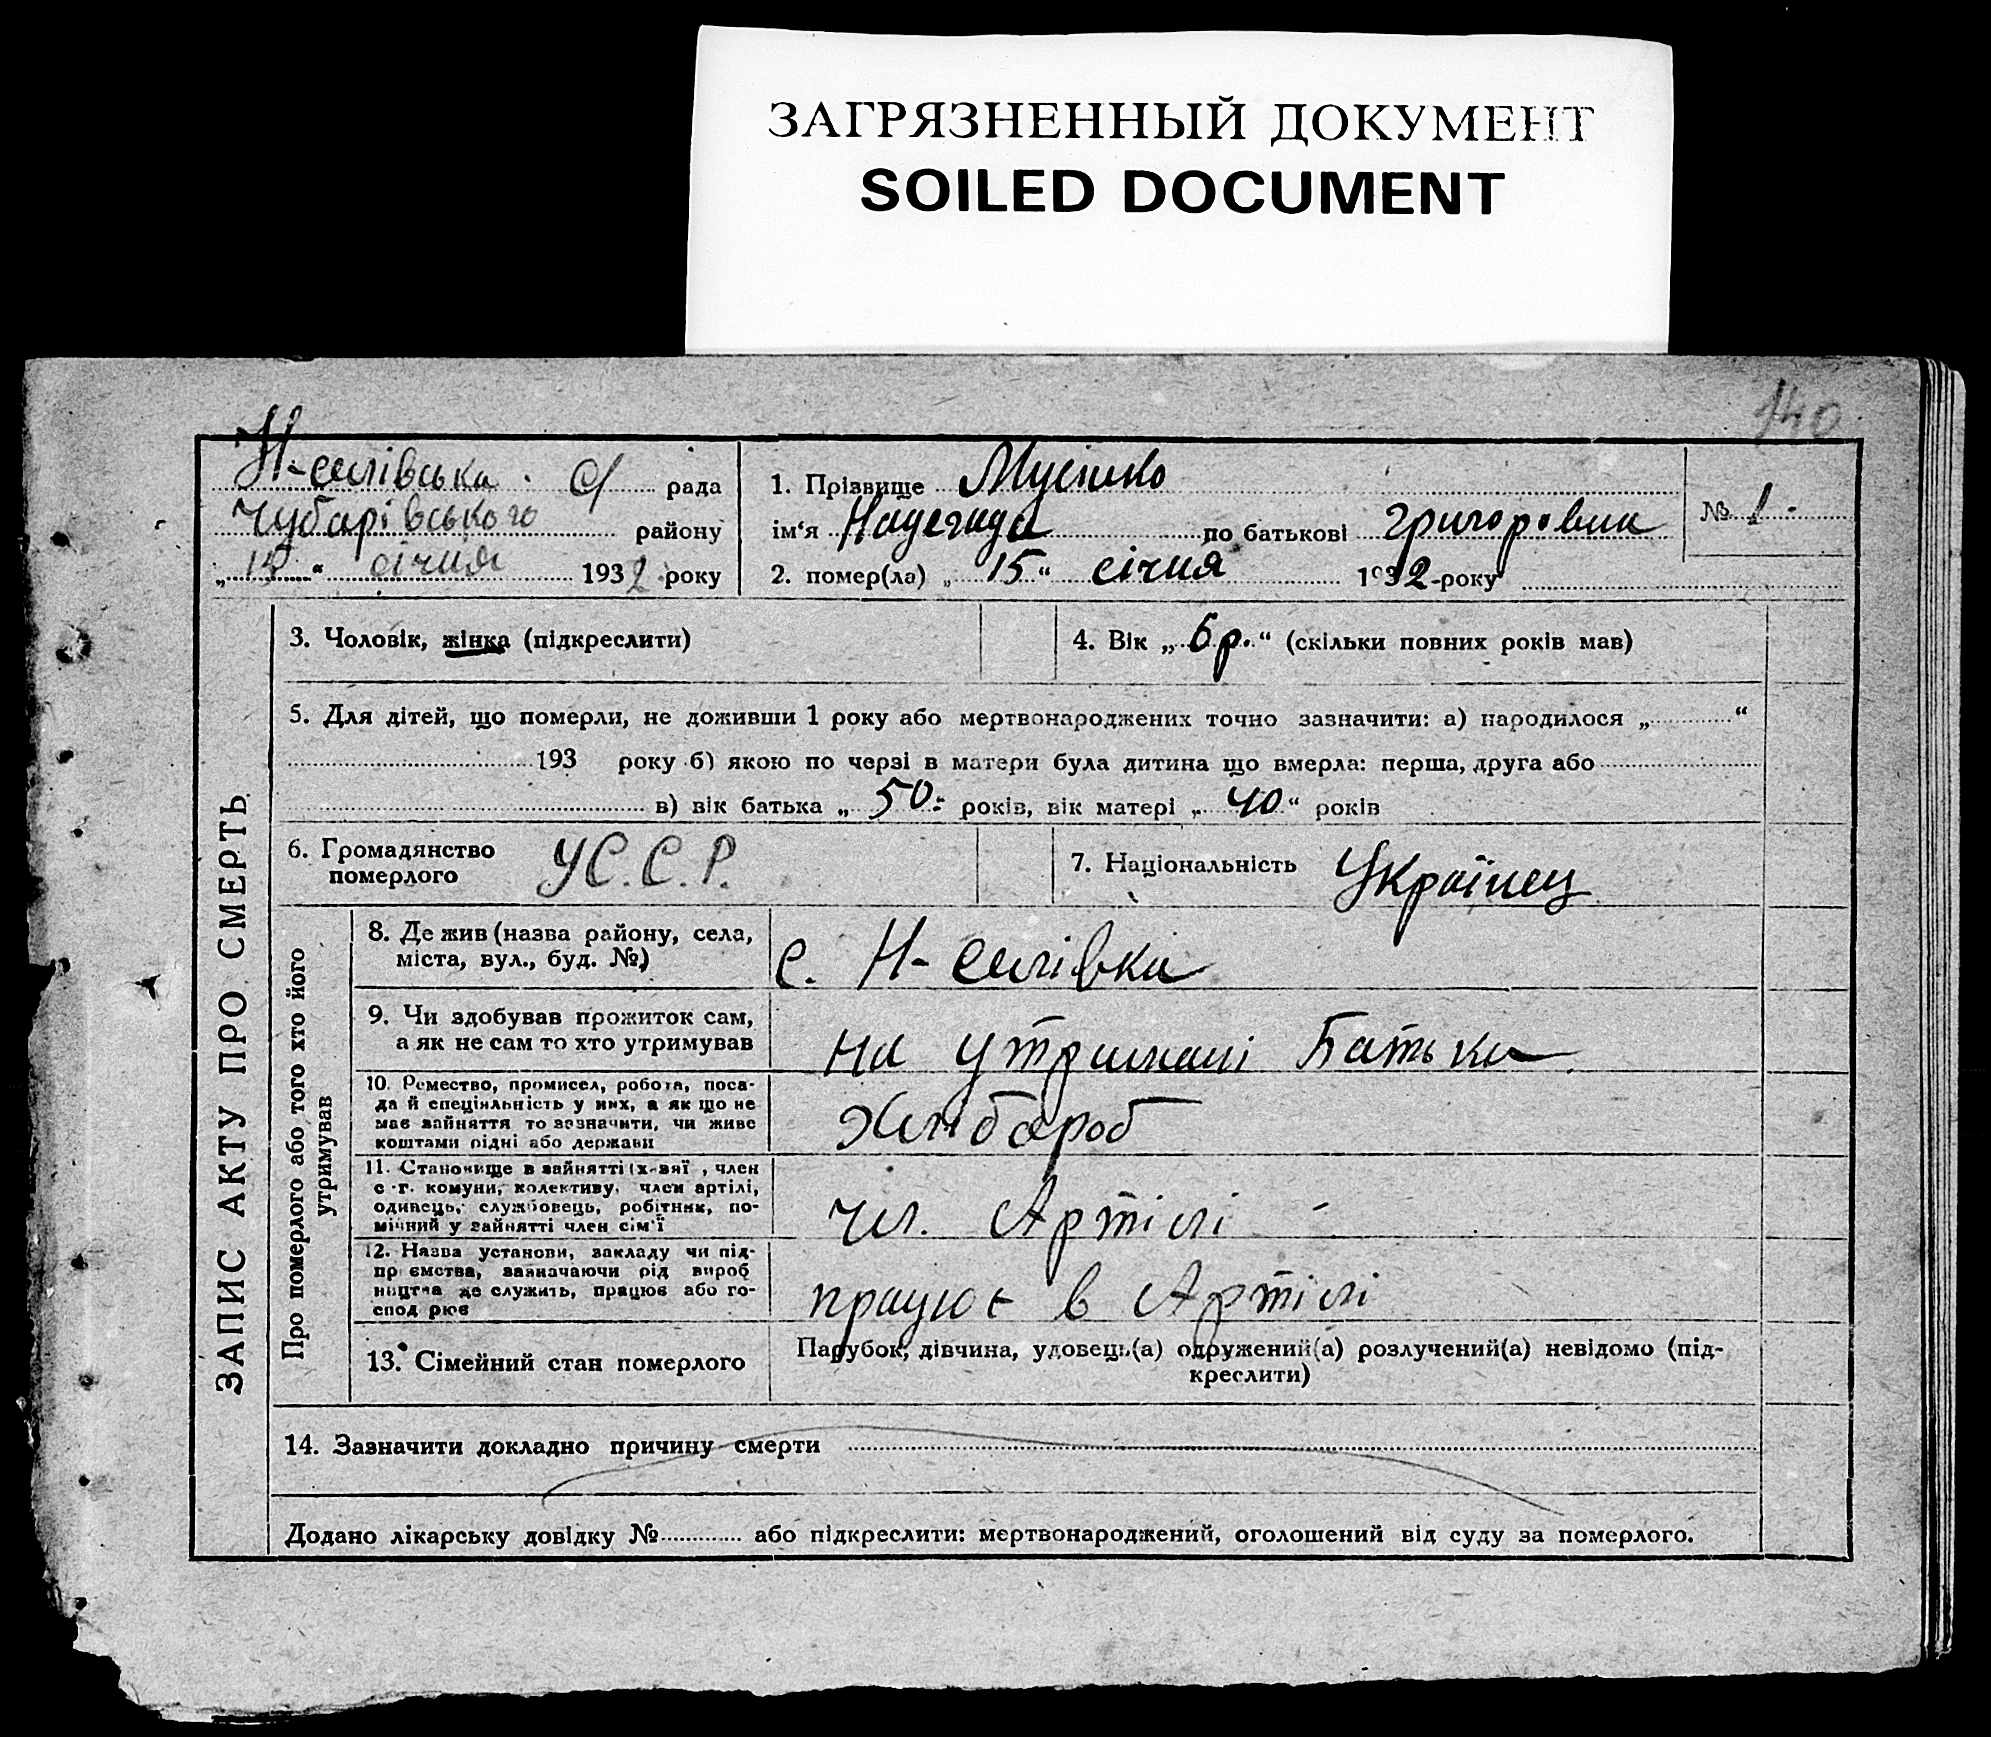 ЗАГРЯЗНЕННЫЙ ДОКУМЕНТ
SOILED DOCUMENT
140
Н-селівська с/ рада
Чубарівського району
„15“ січня 1932 року
1. Прізвище Мусієнко
ім‘я Надегида по батькові Григоровна
№ 1
2. помер(ла) „15“ січня 1932 року
ЗАПИС АКТУ ПРО СМЕРТЬ
3. Чоловік, жінка (підкреслити)
4. Вік „6 р.“ (скільки повних років мав)
5. Для дітей, що померли, не доживши 1 року або мертвонароджених точно зазначити: а) народилося „ “
193 року б) якою по черзі в матери була дитина що вмерла: перша, друга або
в) вік батька „50“ років, вік матері „40“ років
6. Громадянство
померлого
УС.С.Р.
7. Національність Українец
Про померлого або того хто його
утримував
8. Де жив (назва району, села,
міста, вул., буд. №)
с. Н-селівка
9. Чи здобував прожиток сам,
а як не сам то хто утримував
на утримані Батька
10. Ремество, промисел, робота, поса-
да й спеціяльність у них, а як що не
має зайняття то зазначити, чи живе
коштами рідні або держави
Хлібороб
11. Становище в зайнятті (х-вяї , член
с-г. комуни, колективу, член артілі,
одинець, службовець, робітник, по-
мічний у зайнятті член сім‘ї
чл. Артілі
12. Назва установи, закладу чи під-
пр ємства, зазначаючи рід вироб
ництва де служить, працює або го-
спод рює
працює в Артілі
13. Сімейний стан померлого
Парубок, дівчина, удовець(а) одружений(а) розлучений(а) невідомо (під-
креслити)
14. Зазначити докладно причину смерти
Додано лікарську довідку № або підкреслити: мертвонароджений, оголошений від суду за померлого.